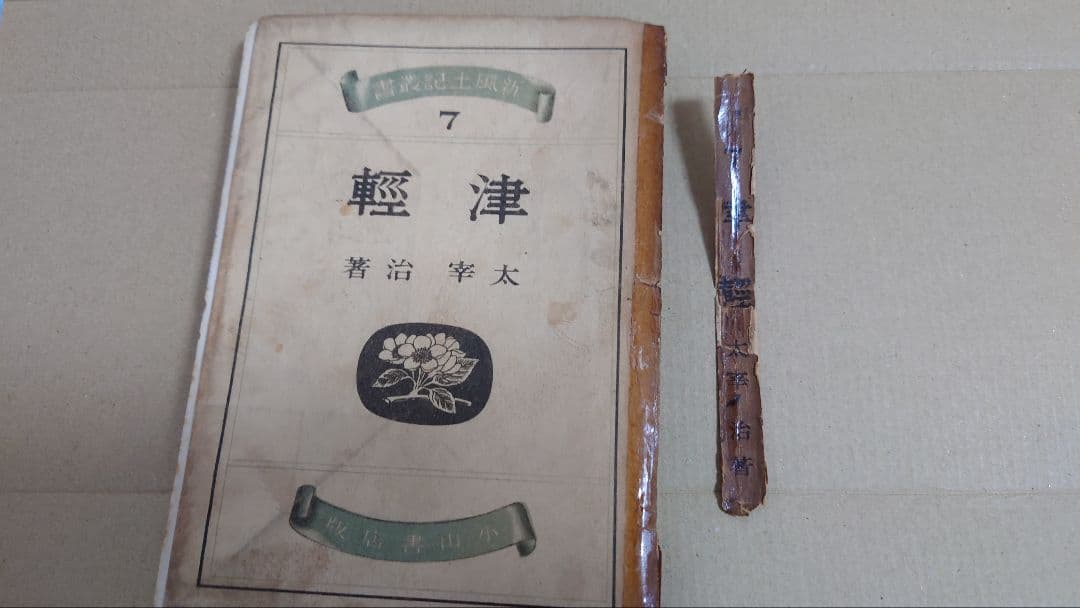 書叢記土風新
7
輕津
著治宰太
版店書山小
7
津
輕
太宰治著